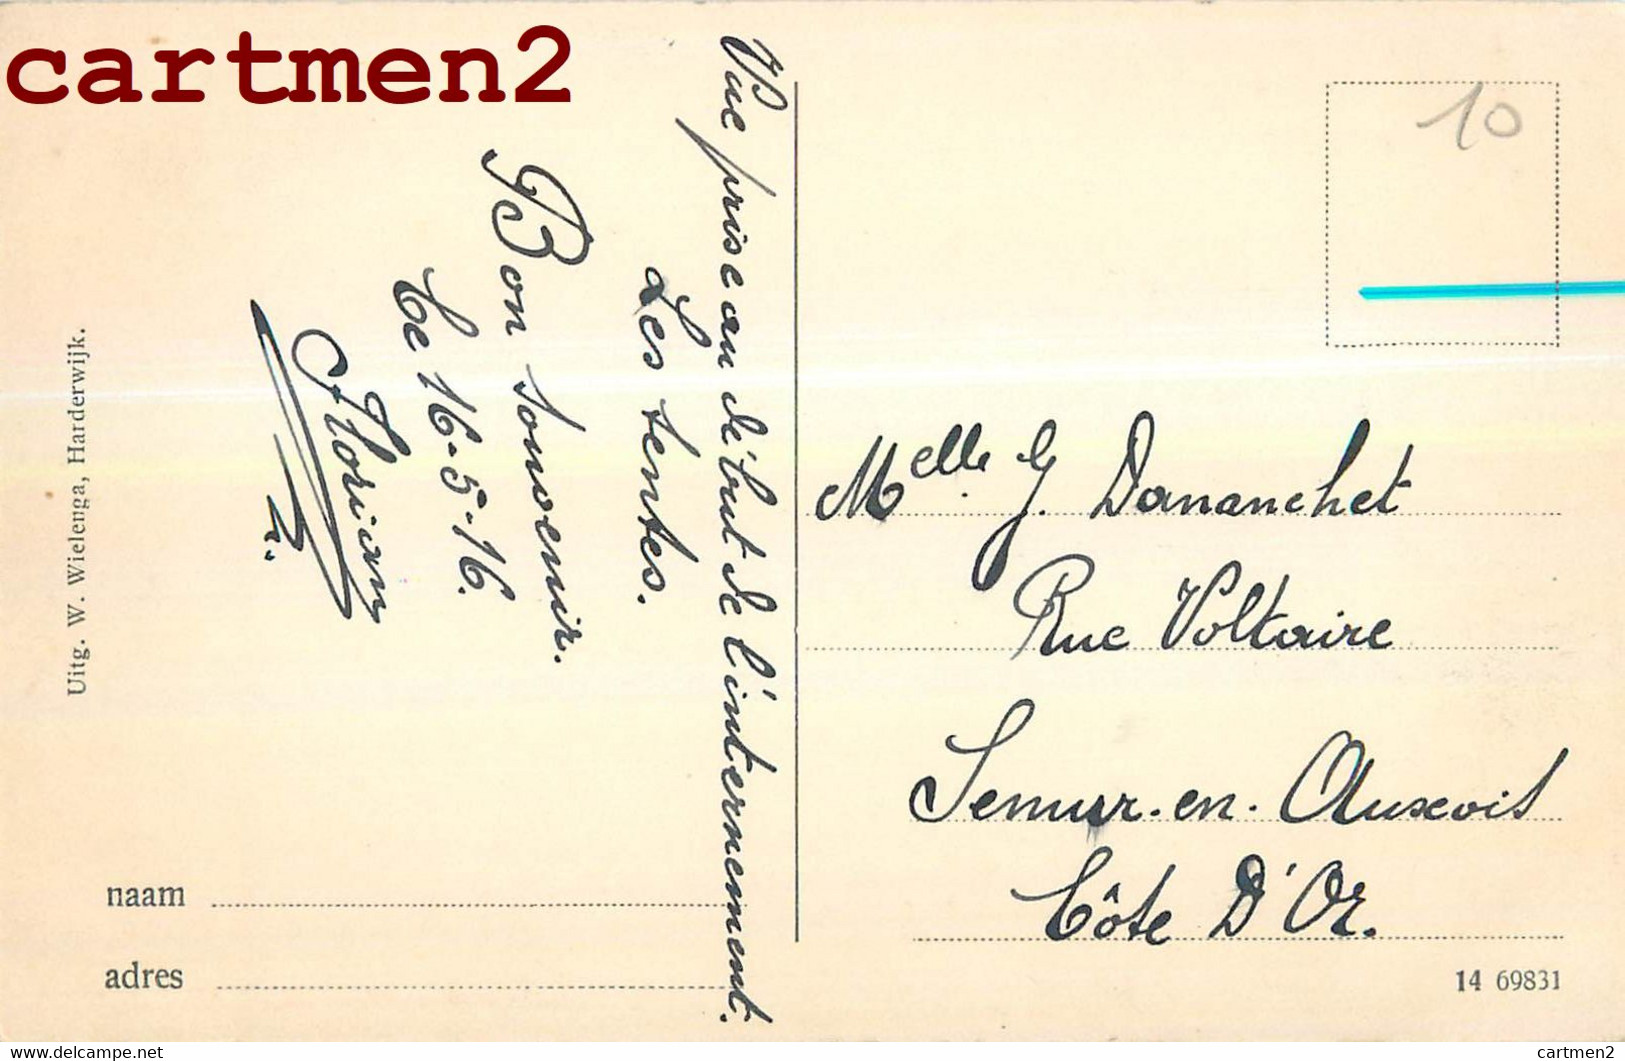 cartmen2
Vue prise au début de l'internement.
Les tentes.
Bon souvenir.
Ce 16-5-16.
Florian
Uitg. W. Wielenga, Harderwijk.
naam
adres
10
Melle G. Dananchet
Rue Voltaire
Semur-en-Auxois
Côte D'Or.
14 69831
https://www.delcampe.net
cartmen2